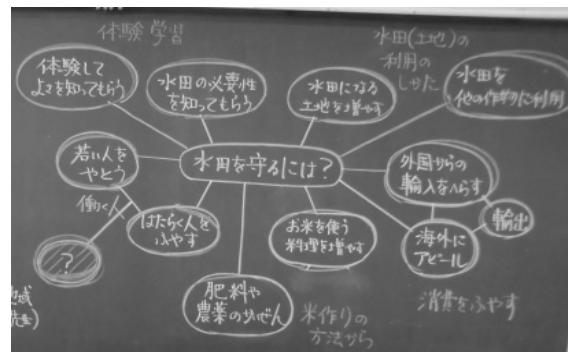 体験学習
水田(土地)の
利用の
しかた
体験して
よさを知ってもらう
水田の必要性
を知ってもらう
水田になる
土地を増やす
水田を
他の作物に利用
若い人を
やとう
水田を守るには?
外国からの
輸入をへらす
働く人
はたらく人を
ふやす
お米を使う
料理を増やす
海外に
アピール
輸出
?
肥料や
農薬のかいぜん
米作りの
方法から
消費をふやす
地域